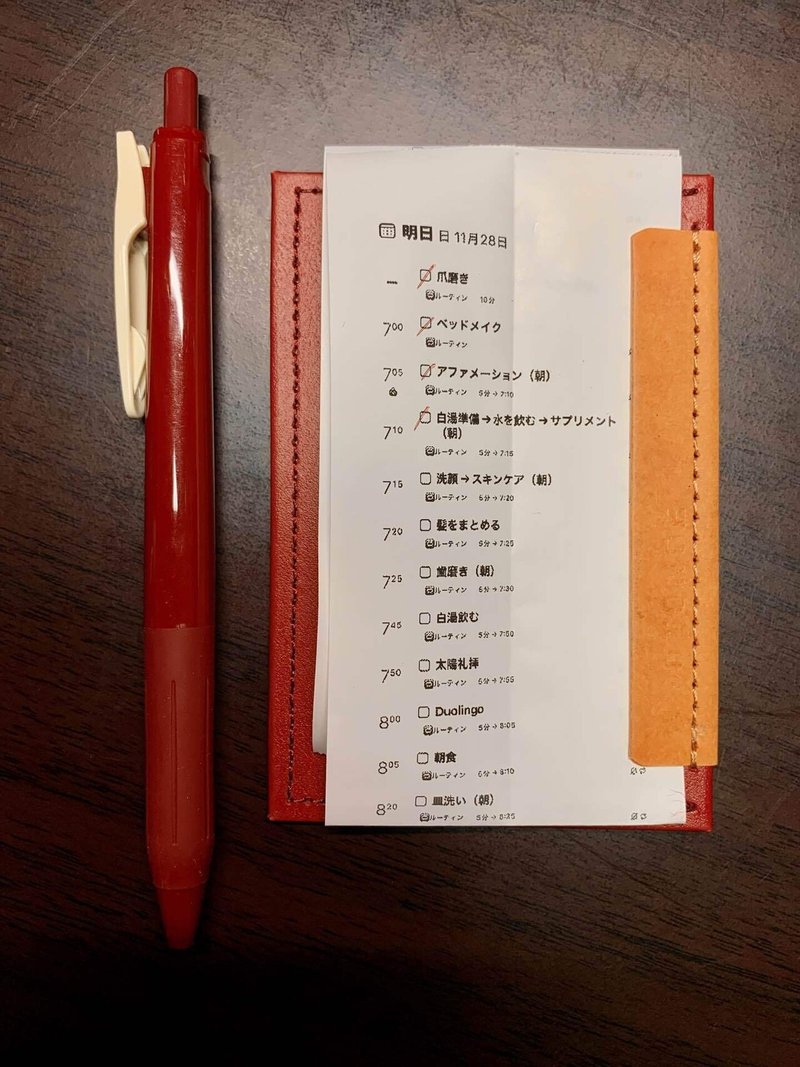 明日 日 11月28日
爪磨き
ルーティン 10分
7:00 ベッドメイク
ルーティン
7:05 アファメーション（朝）
ルーティン 5分→7:10
7:10 白湯準備→水を飲む→サプリメント
（朝）
ルーティン 5分→7:15
7:15 洗顔→スキンケア（朝）
ルーティン 5分→7:20
7:20 髪をまとめる
ルーティン 5分→7:25
7:25 歯磨き（朝）
ルーティン 5分→7:30
7:45 白湯飲む
ルーティン 5分→7:50
7:50 太陽礼拝
ルーティン 5分→7:55
8:00 Duolingo
ルーティン 5分→8:05
8:05 朝食
ルーティン 5分→8:10
8:20 皿洗い（朝）
ルーティン 5分→8:25